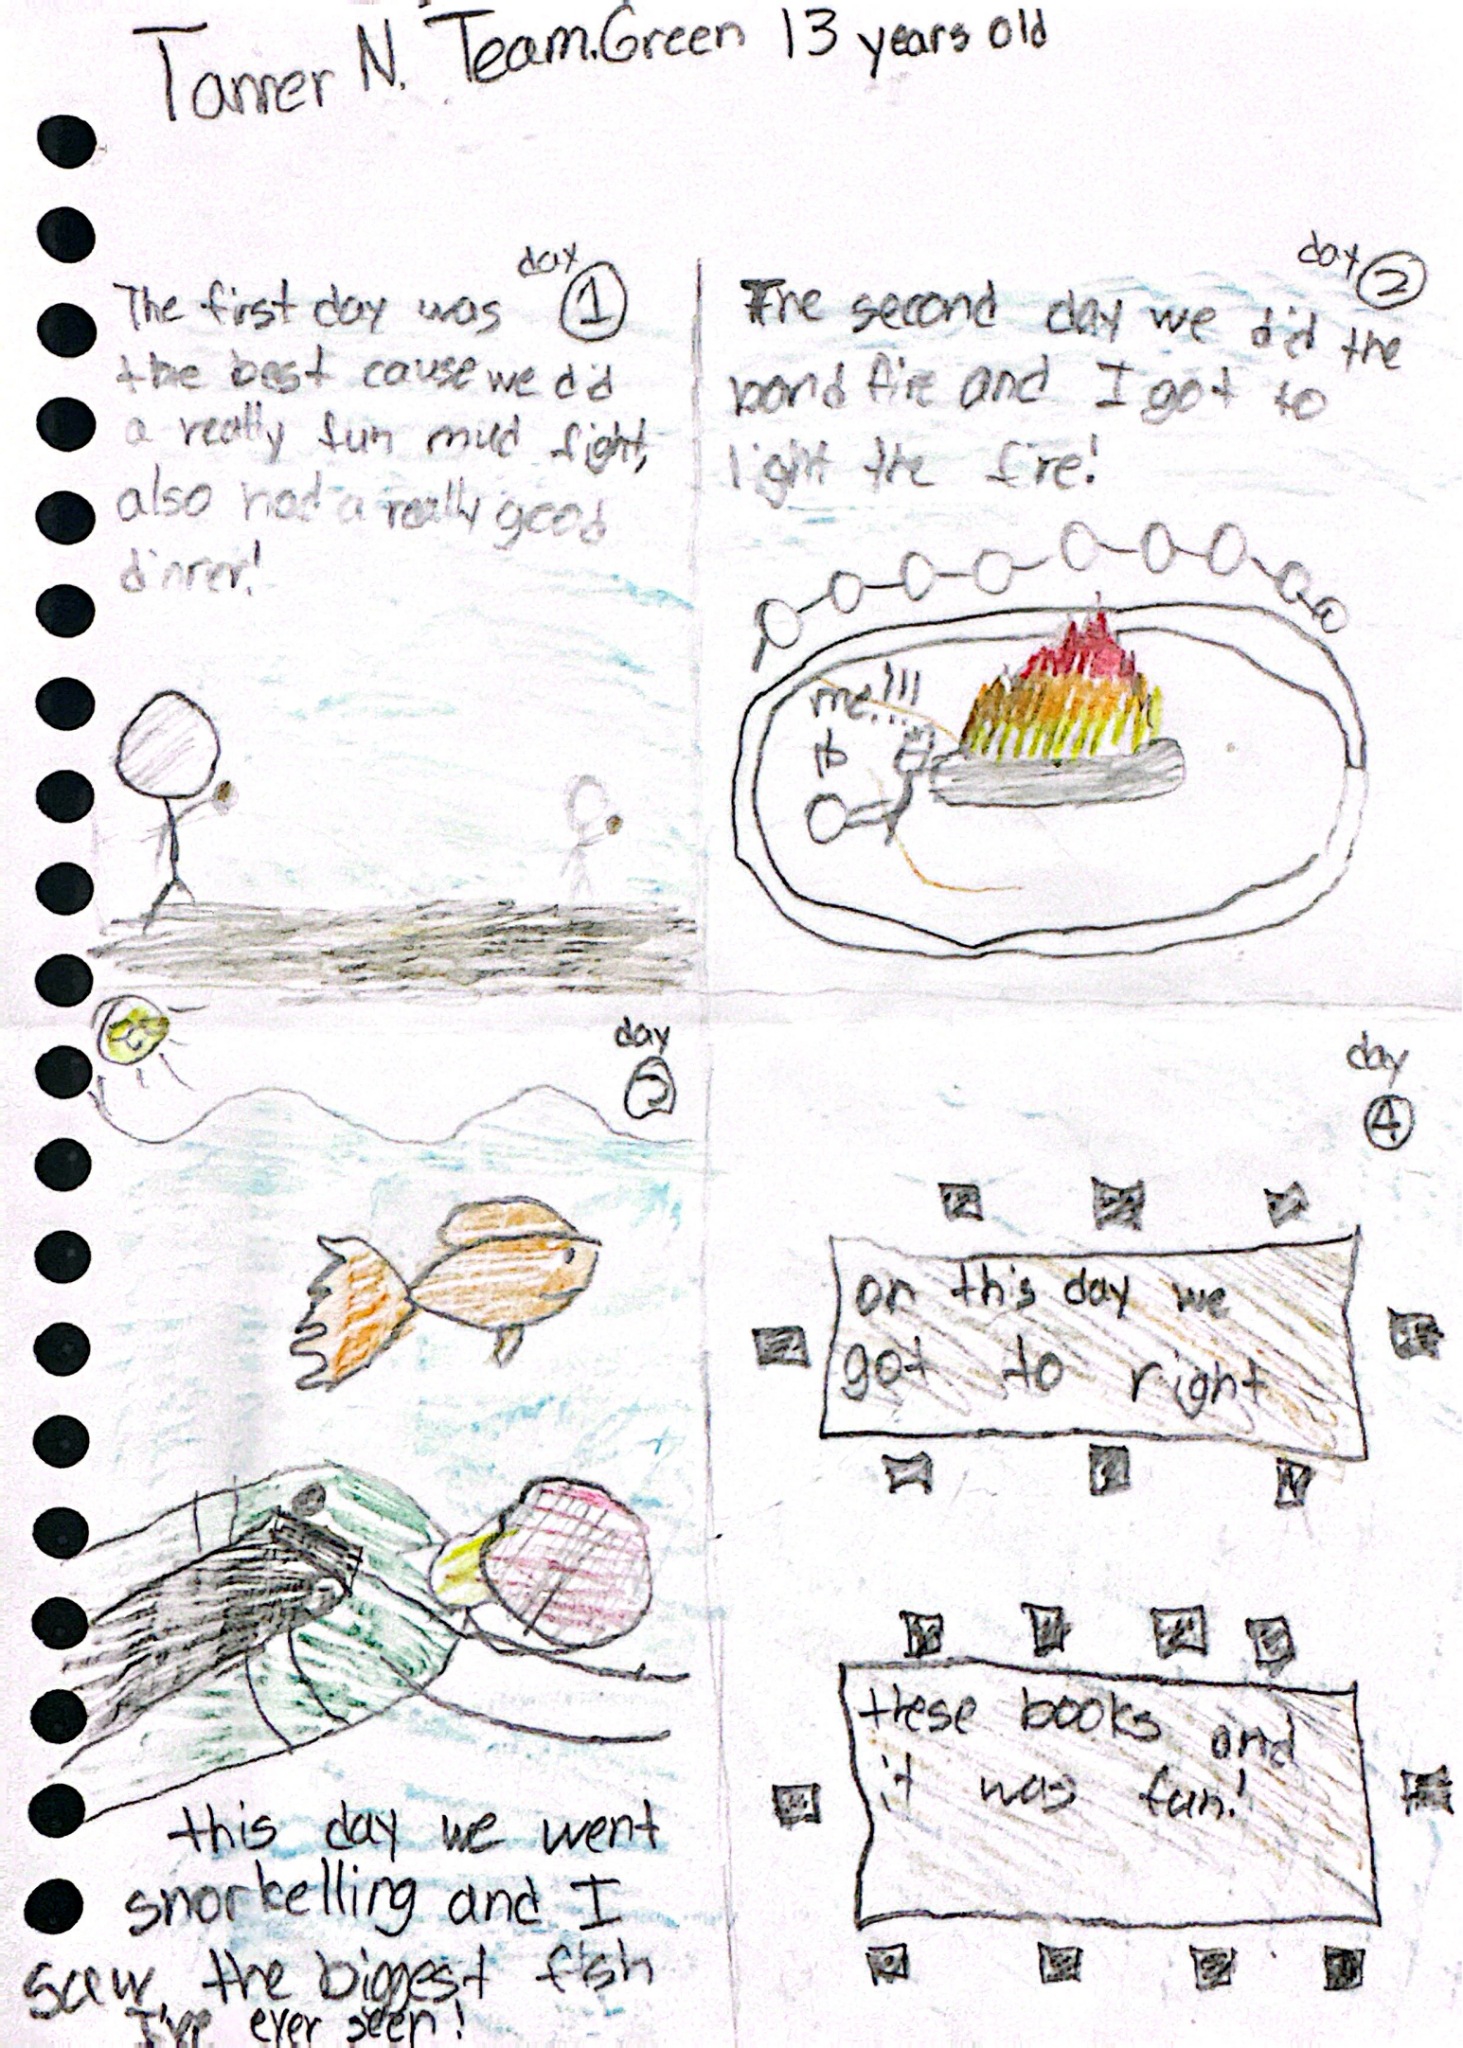 Tanner N. Team.Green 13 years old
day
1
The first day was
the best cause we did
a really fun mud fight,
also had a really good
dinner!
day
2
The second day we did the
bond fire and I got to
light the fire!
me!!!
day
3
this day we went
snorkelling and I
saw the biggest fish
I've ever seen!
day
4
on this day we
got to right
these books and
it was fun!